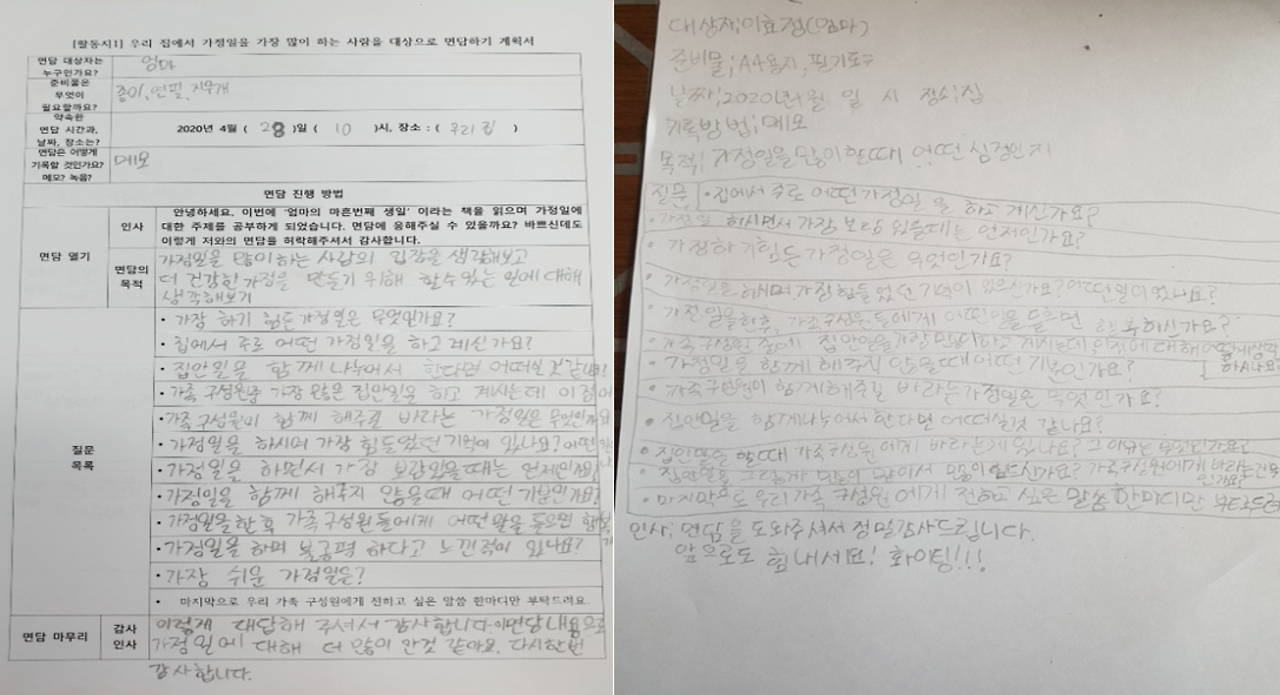 [활동지1] 우리 집에서 가정일을 가장 많이 하는 사람을 대상으로 면담하기 계획서
면담 대상자는
누구인가요?
엄마
준비물은
무엇이
필요할까요?
종이, 연필, 지우개
약속한
면담 시간과,
날짜, 장소는?
2020년 4월 ( 28 )일 ( 10 )시, 장소 : ( 우리 집 )
면담은 어떻게
기록할 것인가요?
메모? 녹음?
메모
면담 진행 방법
면담 열기
인사
안녕하세요. 이번에 '엄마의 마흔번째 생일' 이라는 책을 읽으며 가정일에
대한 주제를 공부하게 되었습니다. 면담에 응해주실 수 있을까요? 바쁘신데도
이렇게 저와의 면담을 허락해주셔서 감사합니다.
면담의
목적
가정일을 많이하는 사람의 입장을 생각해보고
더 건강한 가정을 만들기 위해 할수있는 일에 대해
생각해보기
질문
목록
• 가장 하기 힘든 가정일은 무엇인가요?
• 집에서 주로 어떤 가정일을 하고 계신가요?
• 집안일을 함께 나누어서 한다면 어떠실 것 같나요?
• 가족 구성원중 가장 많은 집안일을 하고 계시는데 이점에
• 가족구성원이 함께 해주길 바라는 가정일은 무엇인가요
• 가정일을 하시며 가장 힘들었던 기억이 있나요? 어떤
• 가정일을 하면서 가장 보람있을때는 언제인가요?
• 가정일을 함께 해주지 않을때 어떤 기분인가요?
• 가정일을 한 후 가족구성원들에게 어떤 말을 들으면 행복
• 가정일을 하며 불공평 하다고 느낀적이 있나요?
• 가장 쉬운 가정일은?
• 마지막으로 우리 가족 구성원에게 전하고 싶은 말씀 한마디만 부탁드려요.
면담 마무리
감사
인사
이렇게 대답해 주셔서 감사합니다. 이면담내용으로
가정일에 대해 더 많이 안것 같아요. 다시한번
감사합니다.
대상자; 이효정(엄마)
준비물; A4용지, 필기도구
날짜; 2020년4월 일 시 장소; 집
기록방법; 메모
목적; 가정일을 많이 할때 어떤 심정인지
질문 • 집에서 주로 어떤 가정일을 하고 계신가요?
• 가정일 하시면서 가장 보람 있을때는 언제인가요?
• 가장하기힘든 가정일은 무엇인가요?
• 가정일을 하시며 가장 힘들었던 기억이 있으신가요? 어떤일이였나요?
• 가정일을한후, 가족구성원들에게 어떤말을 들으면 행복하신가요?
• 가족 구성원 중에 집안일을 가장 많이하고 계시는데, 이점에 대해 어떻게생각
하시나요?
• 가정일을 함께 해주지 않을때 어떤 기분인가요?
• 가족구성원이 함께해주길 바라는가정일은 무엇인가요?
• 집안일을 함께나누어서 한다면 어떠실것 같나요?
• 집안일을 할때 가족구성원에게 바라는게있나요? 그 이유는 무엇인가요?
• 집안일을 그렇게 많이 힘드신가요? 가족구성원에게 바라는건무엇
인가요?
• 마지막으로 우리 가족 구성원에게 전하고 싶은 말씀 한마디만 부탁드려요
인사; 면담을 도와주셔서 정말감사드립니다.
앞으로도 힘내세요! 화이팅!!!